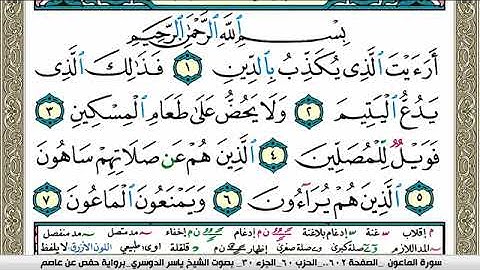 بِسْمِ ٱللَّهِ ٱلرَّحْمَٰنِ ٱلرَّحِيمِ
أَرَءَيْتَ ٱلَّذِى يُكَذِّبُ بِٱلدِّينِ ١ فَذَٰلِكَ ٱلَّذِى
يَدُعُّ ٱلْيَتِيمَ ٢ وَلَا يَحُضُّ عَلَىٰ طَعَامِ ٱلْمِسْكِينِ ٣
فَوَيْلٌ لِّلْمُصَلِّينَ ٤ ٱلَّذِينَ هُمْ عَن صَلَاتِهِمْ سَاهُونَ
٥ ٱلَّذِينَ هُمْ يُرَآءُونَ ٦ وَيَمْنَعُونَ ٱلْمَاعُونَ ٧
م إقلاب غنة إدغام بلاغنة ن م إدغام ن م إخفاء مد متصل مد منفصل
مد اللازم صلة كبرى صلة صغرى إظهار ن م قلقلة طبيعي اللون الأزرق لا يلفظ
سورة الماعون _ الصفحة ٦٠٢.. الحزب ٦٠_ الجزء ٣٠_ بصوت الشيخ ياسر الدوسري_ برواية حفص عن عاصم